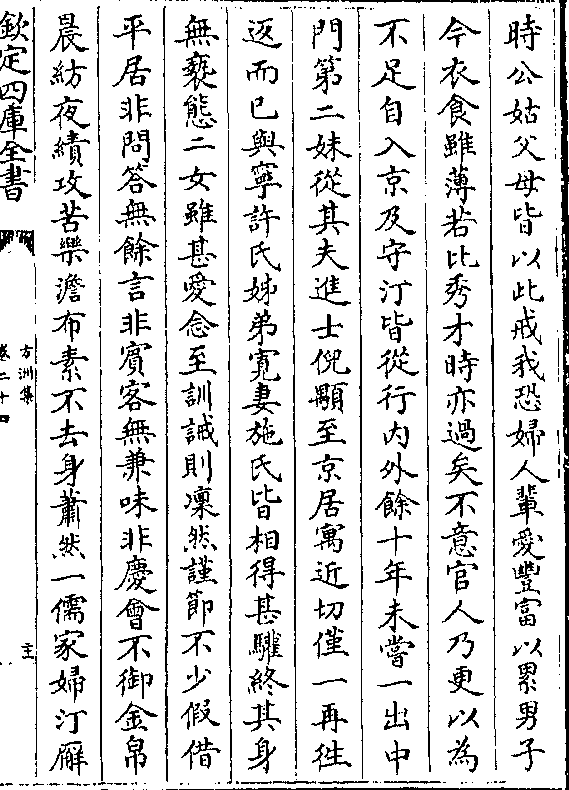 時公姑父母皆以此戒我恐婦人輩愛豐富以累男子
今衣食雖薄若比秀才時亦過矣不意官人乃更以為
不足自入京及守汀皆從行内外餘十年未嘗一出中
門第二妹從其夫進士倪顒至京居寓近切僅一再往
返而已與寧許氏姊弟寛妻施氏皆相得甚驩終其身
無䙝態二女雖甚愛念至訓誡則凜然謹節不少假借
平居非問答無餘言非賓客無兼味非慶㑹不御金帛
晨紡夜績攻苦樂澹布素不去身蕭然一儒家婦汀廨
欽定四庫全書
方洲集
卷二十四